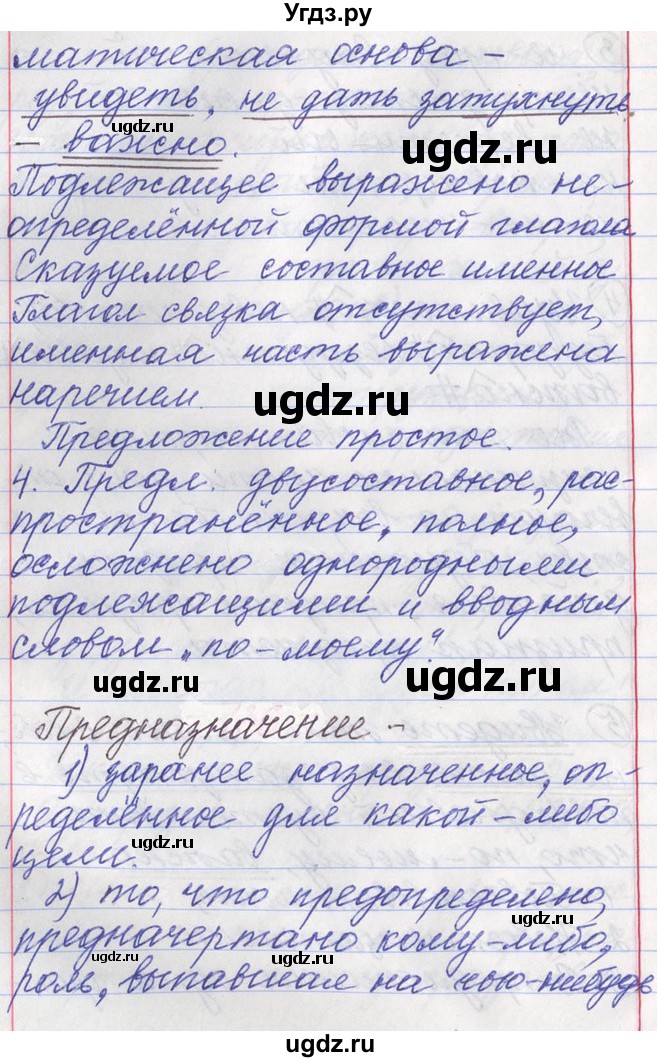 Угдз.ру
матическая основа –
увидеть, не дать затухнуть
ugdz.ru
– важно.
ugdz.ru
Подлежащее выражено не-
определённой формой глагола
Сказуемое составное именное
Глагол связка отсутствует,
именная часть выражена
наречием.
ugdz.ru
Предложение простое.
4. Предл. двусоставное, рас-
пространённое, полное,
осложнено однородными
подлежащими и вводным
словом „по-моему".
ugdz.ru
ugdz.ru
Предназначение –
1) заранее назначенное, оп-
ределённое для какой-либо
цели.
ugdz.ru
2) то, что предопределено,
ugdz.ru
предначертано кому-либо,
роль, выпавшая на чью-нибудь
ugdz.ru
ugdz.ru